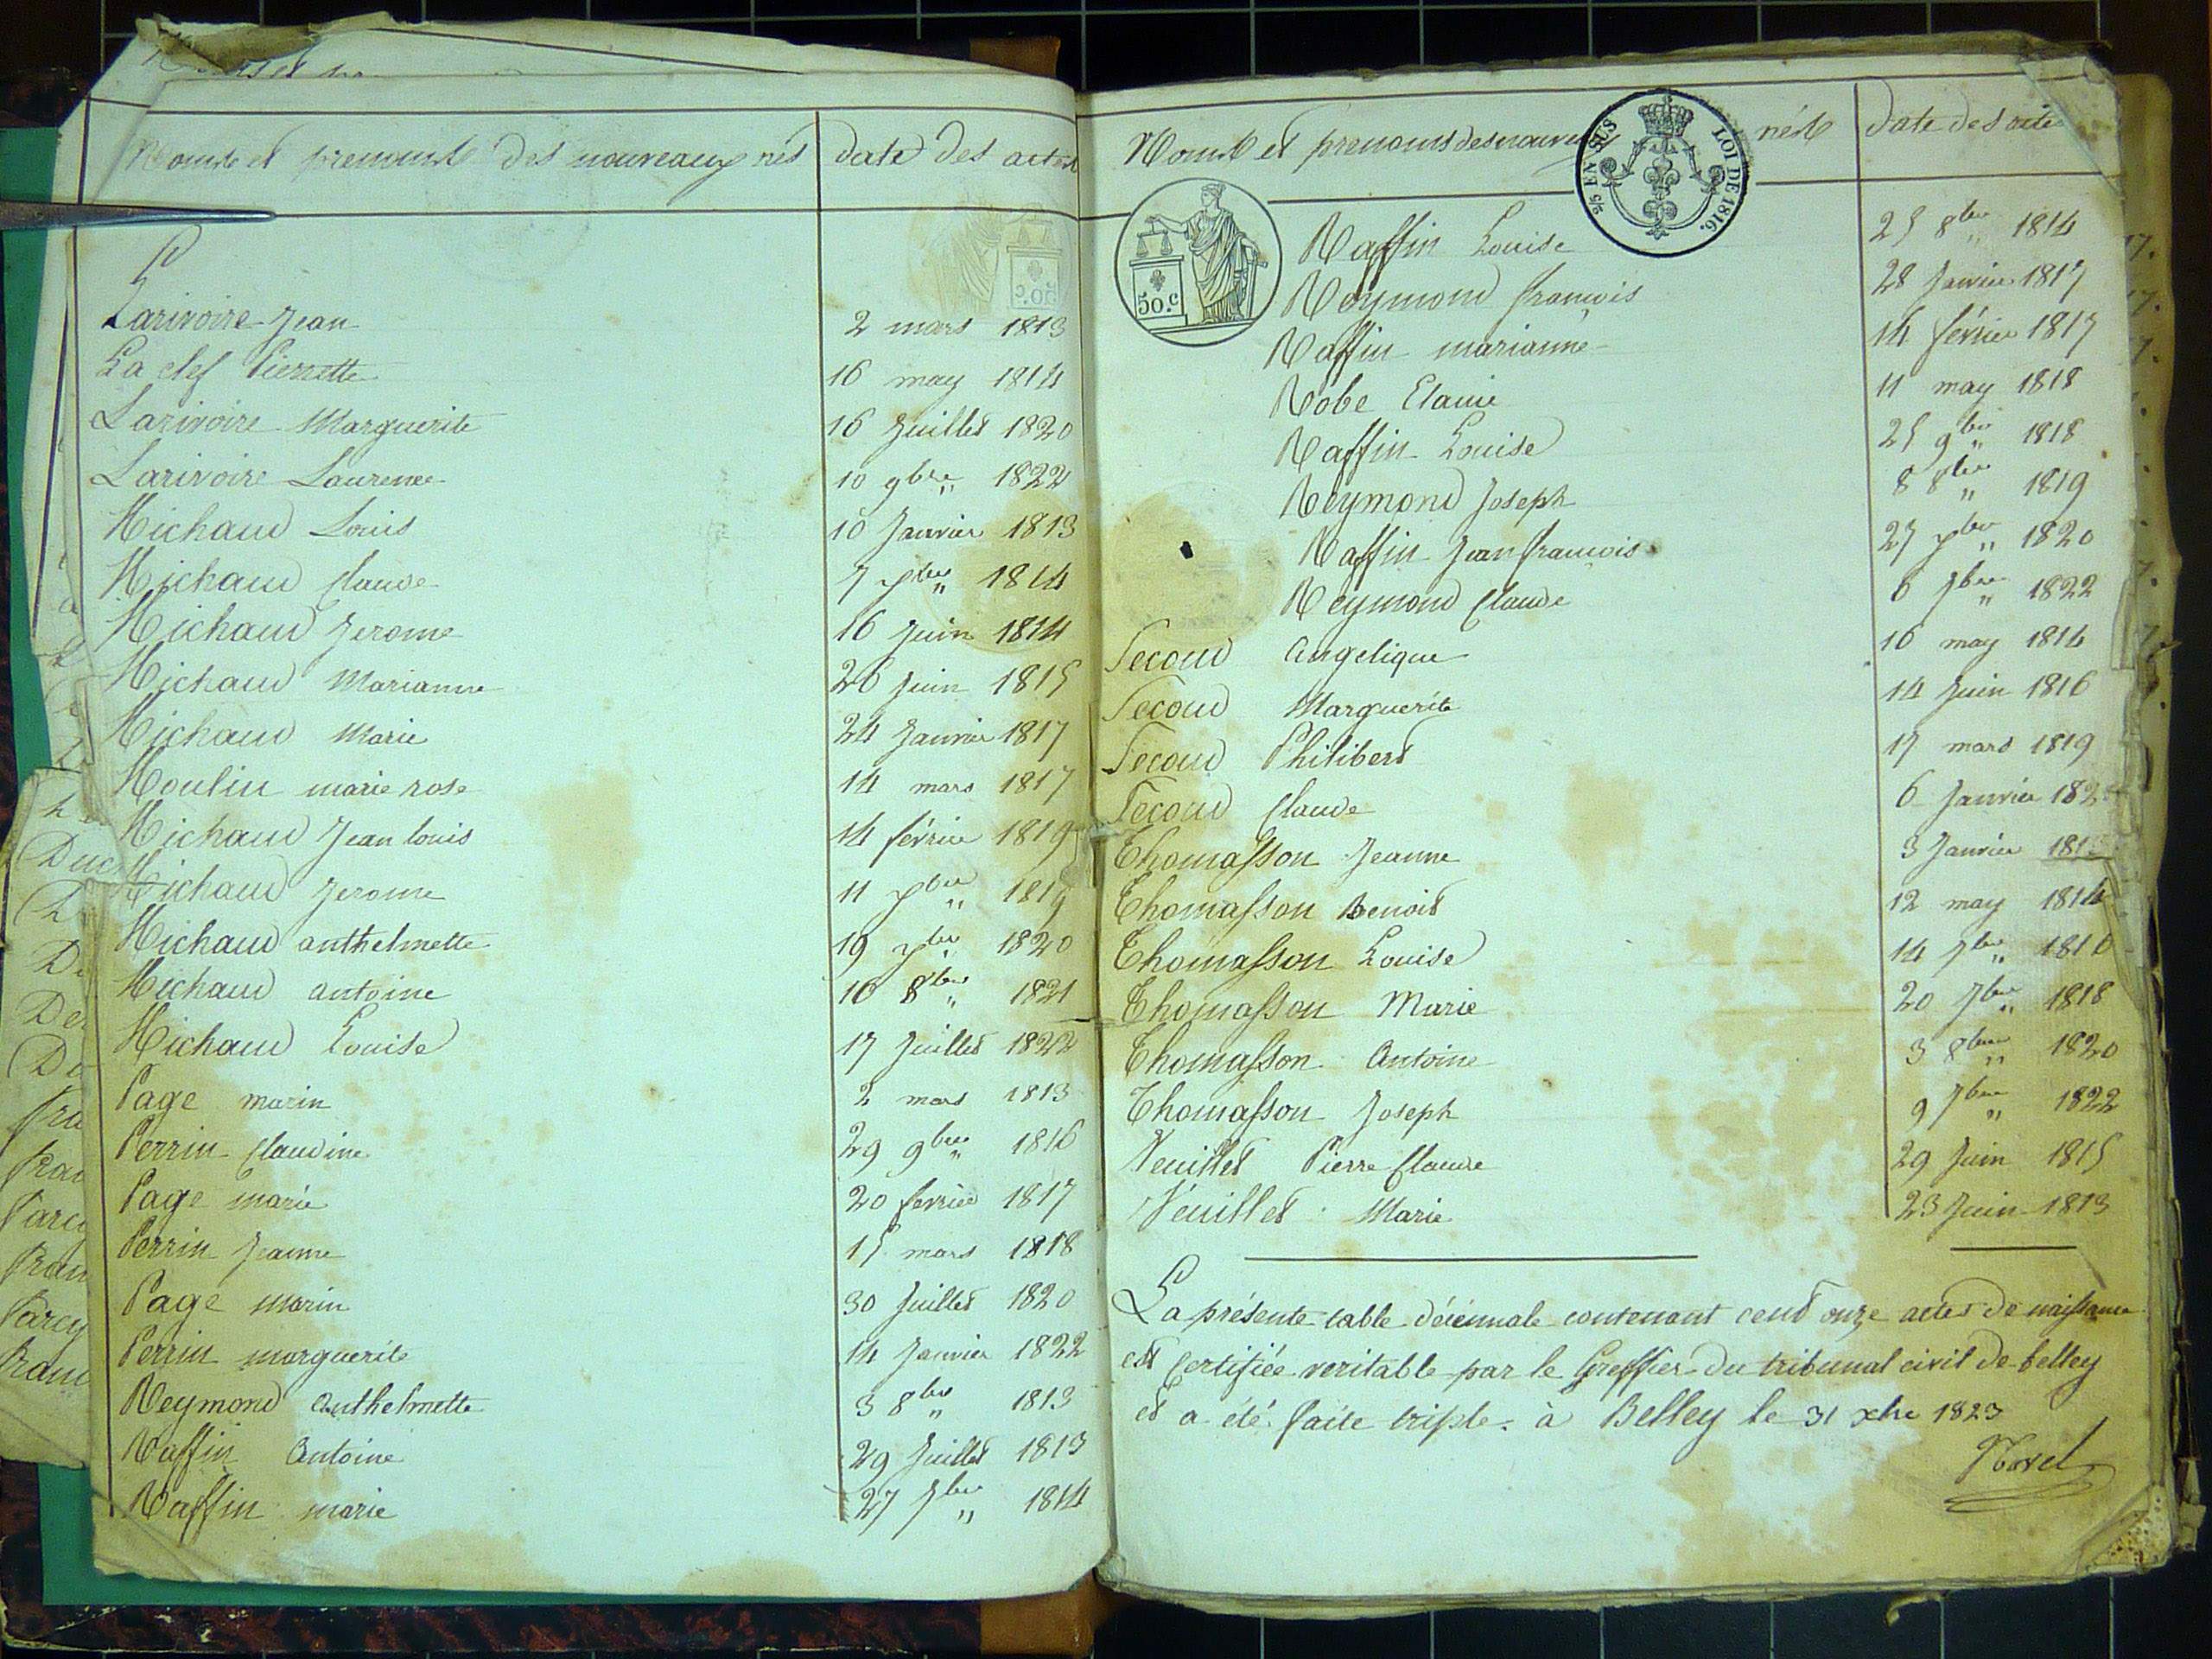 Noms et prenoms des nouveaux nés
date des actes
L
Larivoire Jean 2 mars 1813
La clef Pierrette 16 may 1814
Larivoire Marguerite 16 Juillet 1820
Larivoire Laurence 10 9bre 1822
Michaud Louis 10 Janvier 1813
Michaud Claude 7 1814
Michaud Jerome 16 Juin 1814
Michaud Marianne 26 Juin 1815
Michaud Marie 24 Janvier 1817
Moulin marie rose 14 mars 1817
Michaud Jean louis 14 février 1819
Michaud Jerome 11 1819
Michaud anthelmette 19 1820
Michaud antoine 10 8bre 1821
Michaud Louise 17 Juillet 1822
Page marin 2 mars 1813
Perrin Claudine 29 9bre 1816
Page marie 20 fevrier 1817
Perrin Jeanne 15 mars 1818
Page marin 30 Juillet 1820
Perrin marguerite 14 Janvier 1822
Reymond Anthelmette 3 8bre 1813
Raffin Antoine 29 Juillet 1813
Raffin marie 27 7bre 1814
Noms et prenoms des nouveaux nés
date des actes
5/5 EN SUS LOI DE 1816.
50.c
Raffin Louise 25 8bre 1814
Reymond françois 28 Janvier 1817
Raffin marianne 14 février 1817
Robe 11 may 1818
Raffin Louise 25 9bre 1818
Reymond Joseph 8 8bre 1819
Raffin Jean françois 27 1820
Reymond Claude 6 7bre 1822
Second Angelique 10 may 1814
Second Marguerite 14 Juin 1816
Second Philibert 17 mars 1819
Second Claude 6 Janvier
Thomasson Jeanne 3 Janvier
Thomasson Benoit 12 may 1814
Thomasson Louise 14 7bre 1816
Thomasson Marie 20 7bre 1818
Thomasson Antoine 3 8bre 1820
Thomasson Joseph 9 7bre 1822
Veuillet Pierre Claude 29 Juin 1815
Veuillet Marie 23 Juin 1813
La présente table décennale contenant cent onze actes de naissance
est certifiée veritable par le Greffier du tribunal civil de belley
et a été faite triple. à Belley le 31 xbre 1823